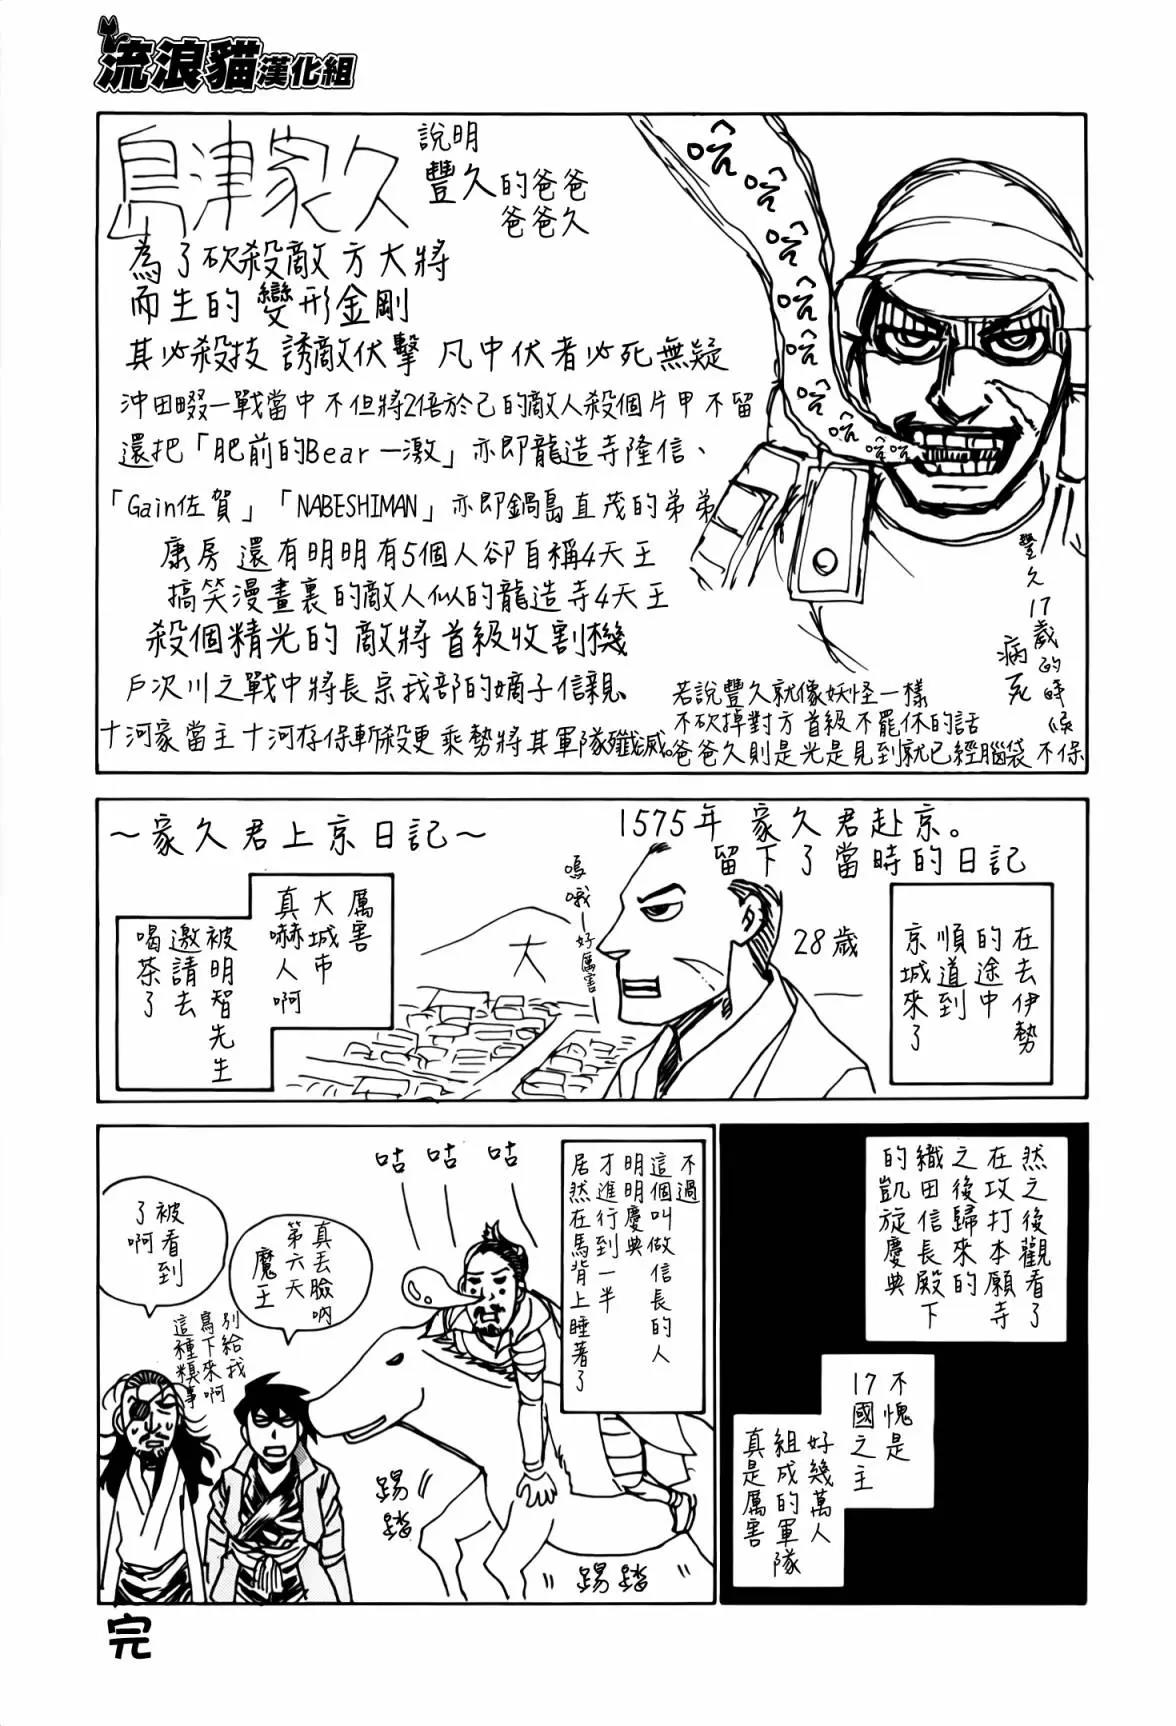 流浪貓漢化組
島津家久
說明
豐久的爸爸
爸爸久
為了砍殺敵方大將
而生的變形金剛
其必殺技 誘敵伏擊 凡中伏者必死無疑
沖田畷一戰當中不但將2倍於己的敵人殺個片甲不留
還把「肥前的Bear一激」亦即龍造寺隆信、
「Gain佐賀」「NABESHIMAN」亦即鍋島直茂的弟弟
康房 還有明明有5個人卻自稱4天王
搞笑漫畫裏的敵人似的龍造寺4天王
殺個精光的 敵將首級收割機
戶次川之戰中將長宗我部的嫡子信親、
十河家當主十河存保斬殺更乘勢將其軍隊殲滅。
哈哈哈哈哈哈哈哈
豐久17歲的時候
病死
若說豐久就像妖怪一樣
不砍掉對方首級不罷休的話
爸爸久則是光是見到就已經腦袋不保
～家久君上京日記～
1575年 家久君赴京。
留下了當時的日記
在去伊勢
的途中
順道到
京城來了
28歲
嗚哦—好厲害—
大
厲害
大城市
真嚇人啊
被明智先生
邀請去
喝茶了
然之後觀看了
在攻打本願寺
之後歸來的
織田信長殿下
的凱旋慶典
不愧是
17國之主
好幾萬人
組成的軍隊
真是厲害
不過
這個叫做信長的人
明明慶典
才進行到一半
居然在馬背上睡著了
咕 咕 咕
真丟臉吶
第六天
魔王
別給我
寫下來啊
這種糗事
被看到
了啊
踢踏
踢踏
完